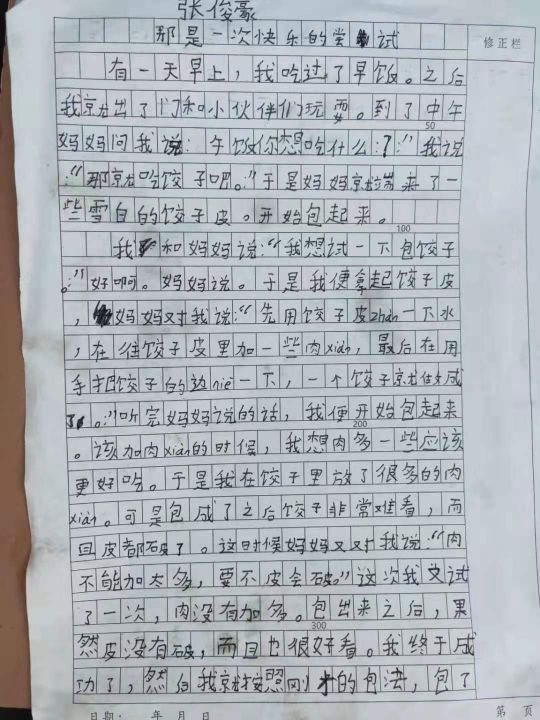 张俊豪
那是一次快乐的尝试
修正栏
有一天早上，我吃过了早饭。之后
我就出了门和小伙伴们玩耍。到了中午
50
妈妈问我说：午饭你想吃什么：？”我说
：“那就吃饺子吧。”于是妈妈就端来了一
些雪白的饺子皮。开始包起来。
100
我和妈妈说：“我想试一下包饺子
。”好啊。妈妈说。于是我便拿起饺子皮
，妈妈对我说：“先用饺子皮zhàn一下水
，在往饺子皮里加一些肉xiàn，最后在用
手把饺子的边niē一下，一个饺子就做成
了。”听完妈妈说的话，我便开始包起来
200
。该加肉xiàn的时候，我想肉多一些应该
更好吃。于是我在饺子里放了很多的肉
xiàn。可是包成了之后饺子非常难看，而
且皮都破了。这时候妈妈又对我说：“肉
不能加太多，要不皮会破。”这次我又试
了一次，肉没有加多。包出来之后，果
300
然皮没有破，而且也很好看。我终于成
功了，然后我就按照刚才的包法，包了
日期： 年 月 日
第 页